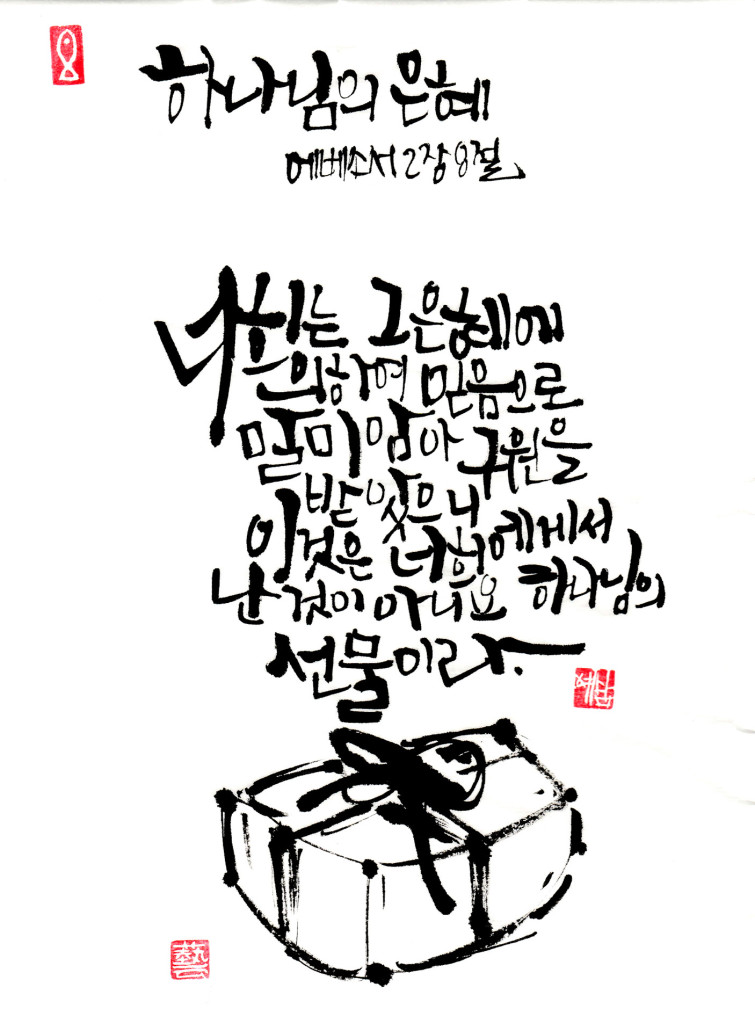 하나님의 은혜
에베소서 2장 8절
너희는 그 은혜에
의하여 믿음으로
말미암아 구원을
받았으니
이것은 너희에게서
난 것이 아니요 하나님의
선물이라.
藝